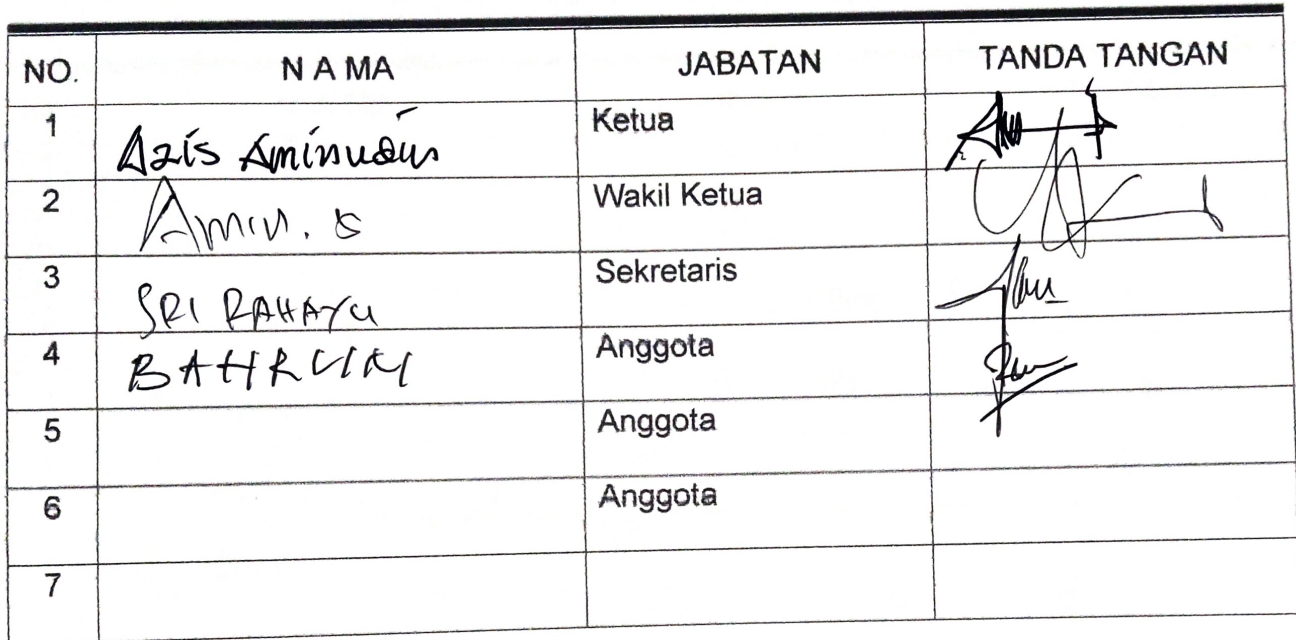 NO. N A MA JABATAN TANDA TANGAN
1 Azis Aminudin Ketua
2 Amin. S Wakil Ketua
3 SRI RAHAYU Sekretaris
4 BAHRUM Anggota
5 Anggota
6 Anggota
7